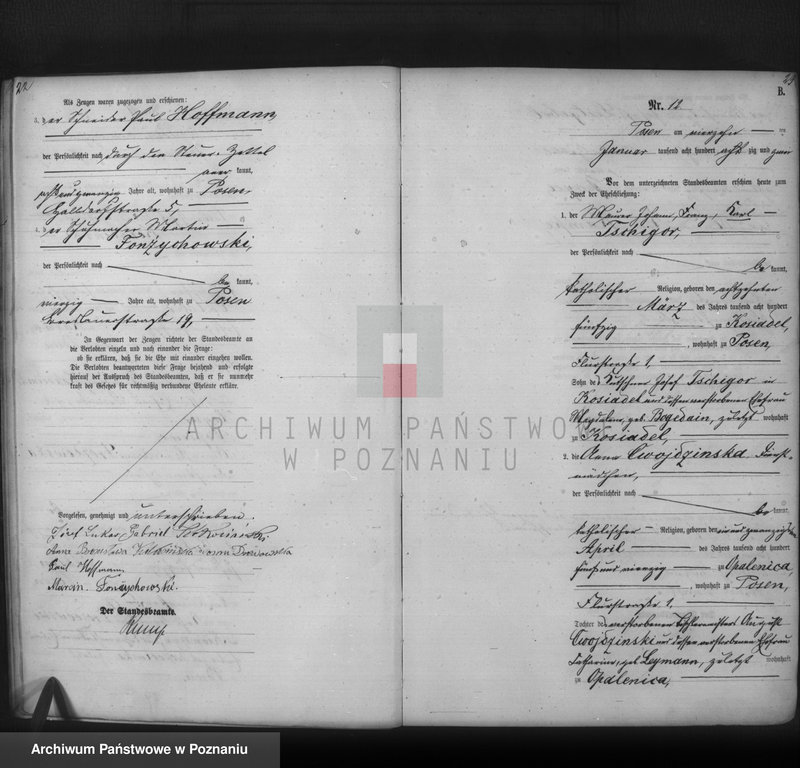 22
Als Zeugen waren zugezogen und erschienen:
3. der Schneider Paul Hoffmann,
der Persönlichkeit nach durch den Steuer-Zettel
aner kannt,
achtundzwanzig Jahre alt, wohnhaft zu Posen,
Halldorfstraße 5,
4. der Schuhmacher Martin
Fonzychowski,
der Persönlichkeit nach
be kannt,
vierzig Jahre alt, wohnhaft zu Posen
Breslauerstraße 19,
In Gegenwart der Zeugen richtete der Standesbeamte an
die Verlobten einzeln und nach einander die Frage:
ob sie erklären, daß sie die Ehe mit einander eingehen wollen.
Die Verlobten beantworteten diese Frage bejahend und erfolgte
hierauf der Ausspruch des Standesbeamten, daß er sie nunmehr
kraft des Gesetzes für rechtmäßig verbundene Eheleute erkläre.
Vorgelesen, genehmigt und unterschrieben.
Józef Gabriel
Anna
Paul Hoffmann,
Marcin Fonzychowski.
Der Standesbeamte.
23
B.
Nr. 12
Posen am vierzehn ten
Januar tausend acht hundert acht zig und zwei
Vor dem unterzeichneten Standesbeamten erschien heute zum
Zweck der Eheschließung:
1. der Maurer Johann, Franz, Karl
Tschigor,
der Persönlichkeit nach
be kannt,
katholischer Religion, geboren den achtzehnten
März des Jahres tausend acht hundert
fünfzig zu Kosiadel,
, wohnhaft zu Posen,
Flurstraße 1,
Sohn des Kutschner Josef Tschigor in
Kosiadel und dessen verstorbenen Ehefrau
Magdalena, geb. Bogdain, zuletzt wohnhaft
zu Kosiadel,
2. die Anna Cwojdzinska, Dienst-
mädchen,
der Persönlichkeit nach
be kannt,
katholischer Religion, geboren den vierundzwanzigsten
April des Jahres tausend acht hundert
fünf und vierzig zu Opalenica,
, wohnhaft zu Posen,
Flurstraße 1,
Tochter des verstorbenen Tischlermeisters August
Cwojdzinski und dessen verstorbenen Ehefrau
Catharina, geb. Leymann, zuletzt wohnhaft
zu Opalenica,
ARCHIWUM PAŃSTWOWE
W POZNANIU
Archiwum Państwowe w Poznaniu